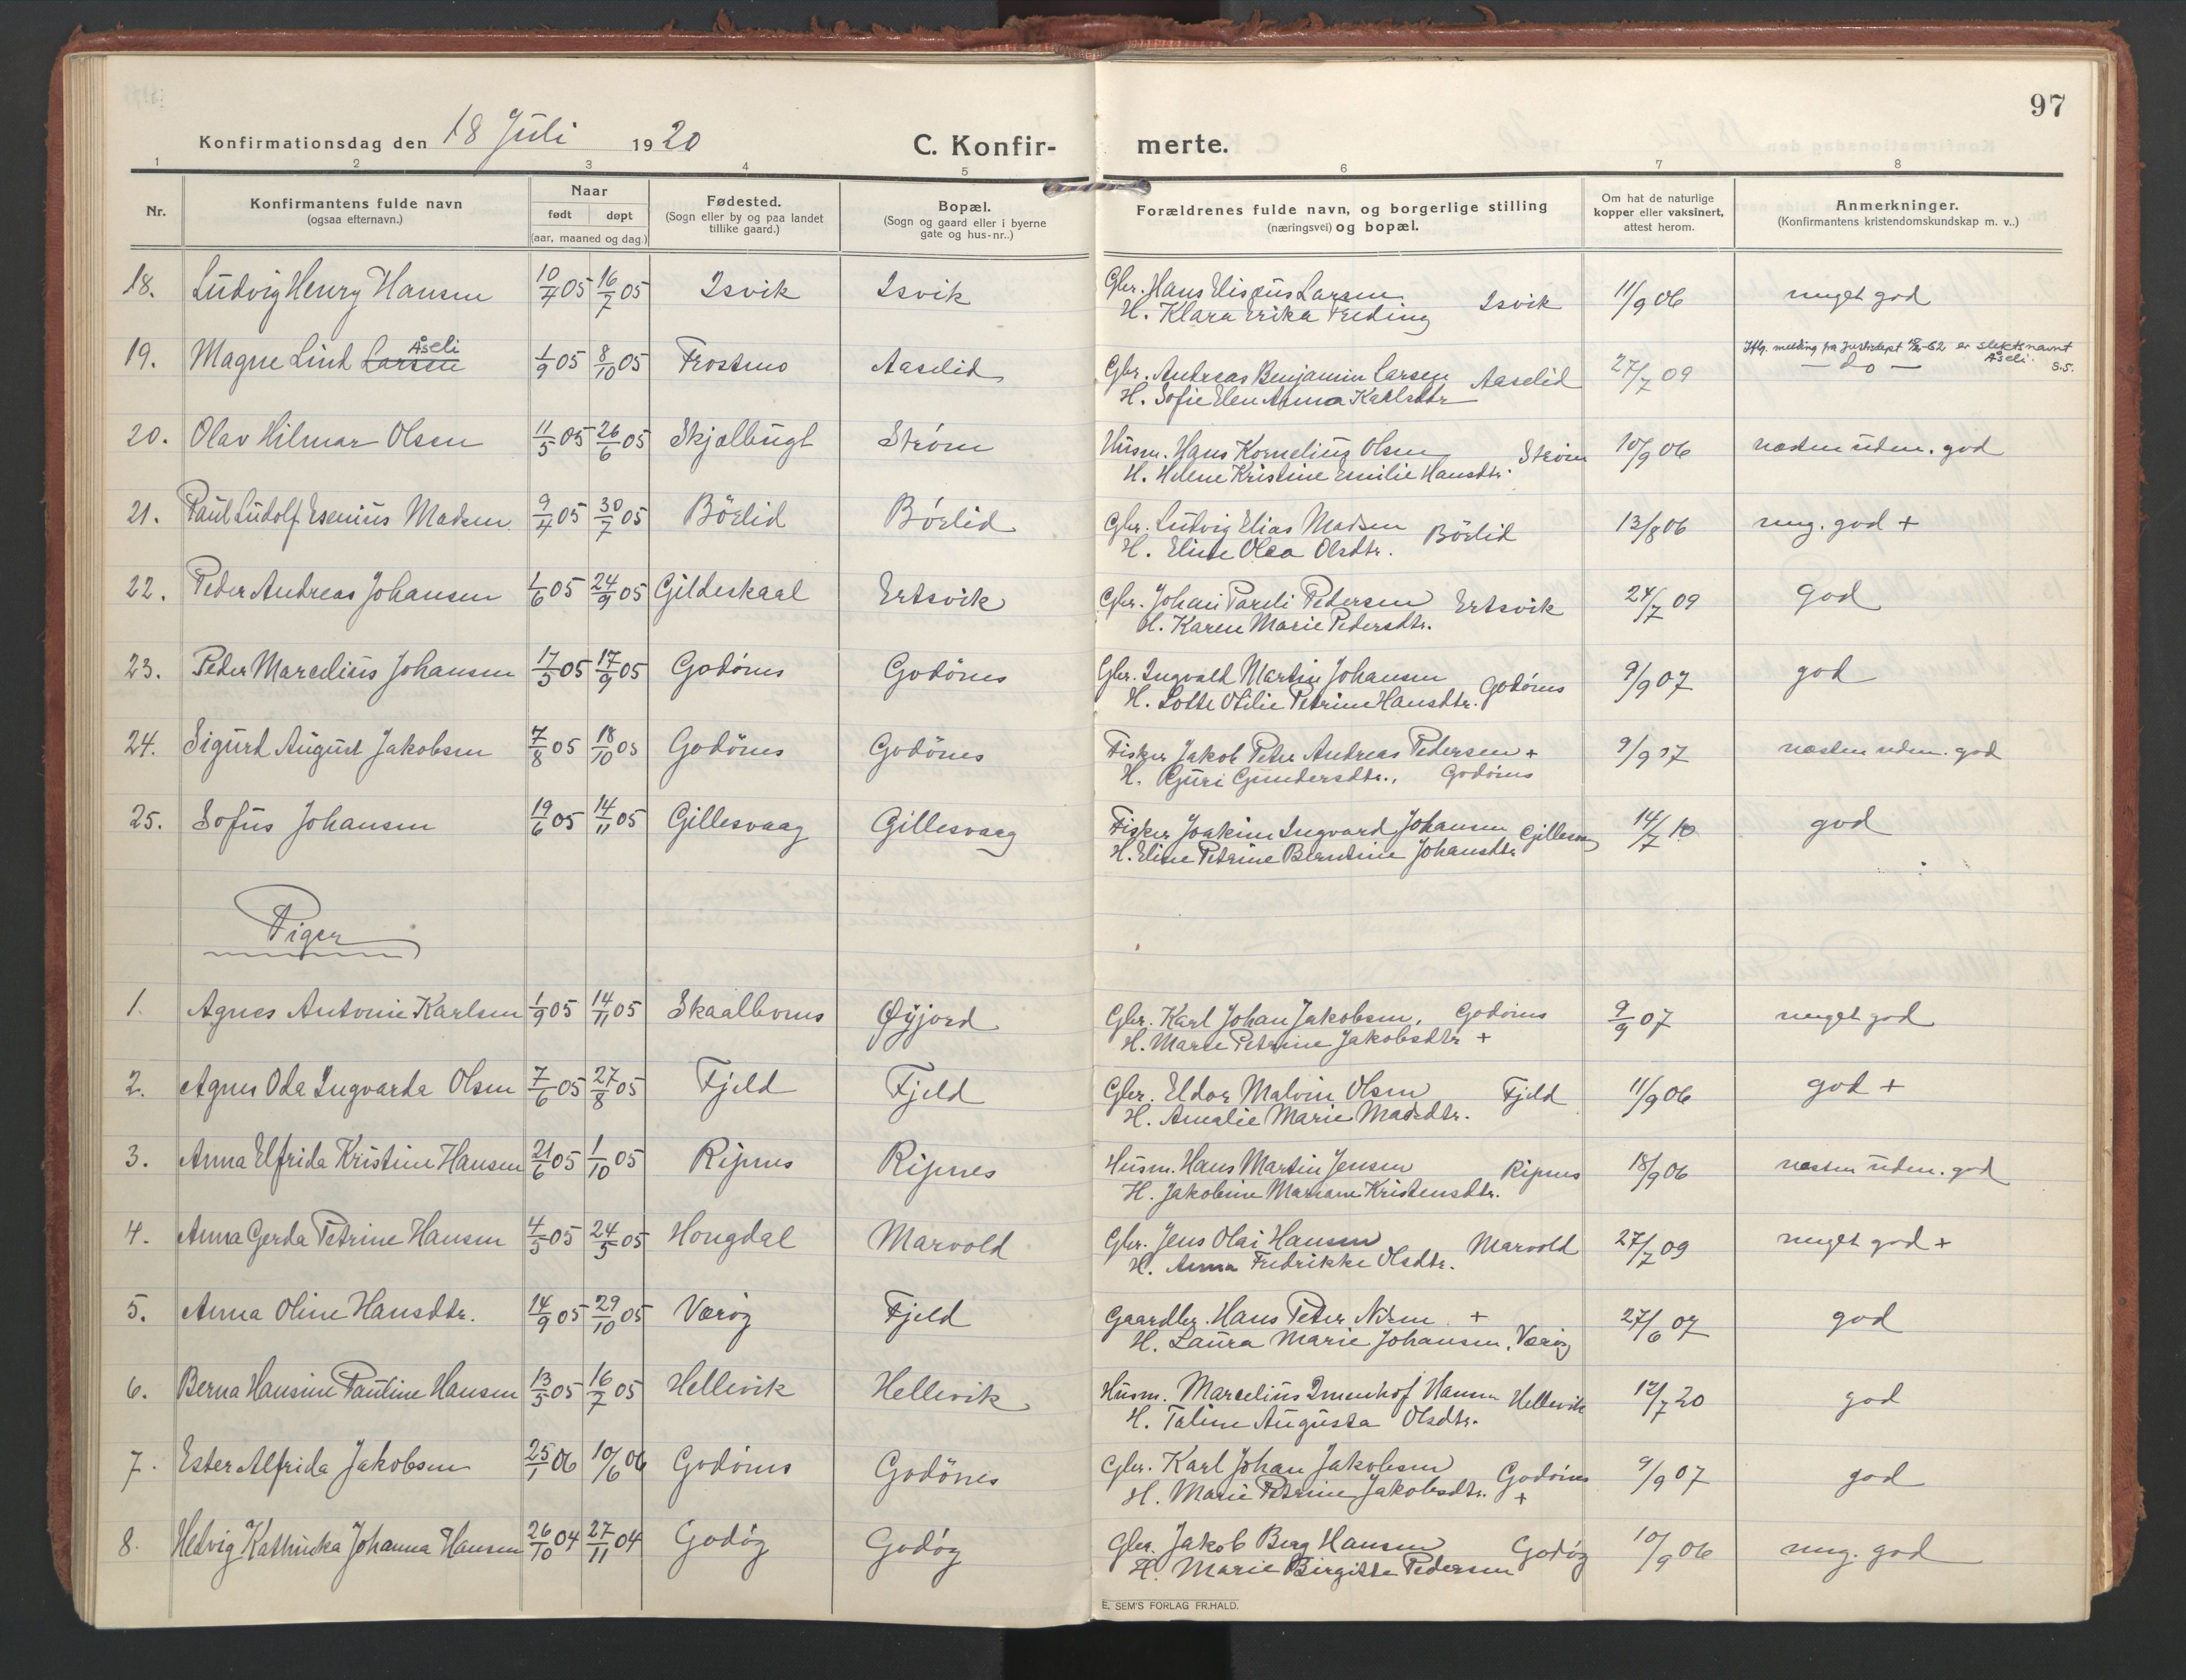 97
Konfirmationsdag den 18 Juli 1920 C. Konfir- merte.
1 2 3 4 5 6 7 8
Nr. Konfirmantens fulde navn (ogsaa efternavn.) Naar født døpt (aar, maaned og dag.) Fødested. (Sogn eller by og paa landet tillike gaard.) Bopæl. (Sogn og gaard eller i byerne gate og hus-nr..) Forældrenes fulde navn, og borgerlige stilling (næringsvei) og bopæl. Om hat de naturlige kopper eller vaksinert, attest herom. Anmerkninger. (Konfirmantens kristendomskundskap m. v..)
18. Ludvig Henry Hansen 10/4 05 16/7 05 Isvik Isvik Gbr. Hans Elisæus Larsen Isvik 11/9 06 meget god
H. Klara Erika Freding
19. Magne Lind Larsen Åseli 1/9 05 8/10 05 Frostmo Aaselid Gbr. Andreas Benjamin Larsen Aaselid 27/7 09 Iflg. melding fra Justisdept er slektsnavnet Åseli. S.S.
H. Sofie Elen Anna Karlsdtr — Do —
20. Olav Hilmar Olsen 11/5 05 26/6 05 Skjalbugt Strøm Husm. Hans Kornelius Olsen Strøm 10/9 06 næsten uden. god
H. Helene Kristine Emilie Hansdtr.
21. Paul Ludolf Esenius Madsen 9/4 05 30/7 05 Börlid Börlid Gbr. Ludvig Elias Madsen Börlid 13/8 06 meg. god +
H. Eline Olea Olsdtr.
22. Peder Andreas Johansen 1/6 05 24/9 05 Gildeskaal Ertsvik Gbr. Johan Pareli Pedersen Ertsvik 24/7 09 god
H. Karen Marie Pedersdtr.
23. Peder Marcelius Johansen 17/5 05 17/9 05 Godönes Godönes Gbr. Ingvald Martin Johansen Godönes 9/9 07 god
H. Lotte Otilie Petrine Hansdtr.
24. Sigurd August Jakobsen 7/8 05 18/10 05 Godönes Godönes Fisker Jakob Peter Andreas Pedersen + 9/9 07 næsten uden. god
H. Guri Gundersdtr., Godönes
25. Sofus Johansen 19/6 05 14/11 05 Gillesvaag Gillesvaag Fisker Joakim Ingvard Johansen Gillesvaag 14/7 10 god
H. Eline Petrine Berntine Johansdtr
Piger
1. Agnes Antonie Karlsen 1/9 05 14/11 05 Skaalbones Øyjord Gbr. Karl Johan Jakobsen, Godönes 9/9 07 meget god
H. Marie Petrine Jakobsdtr +
2. Agnes Oda Ingvarda Olsen 7/6 05 27/8 05 Fjeld Fjeld Gbr. Eldor Malvin Olsen Fjeld 11/9 06 god +
H. Amalie Marie Madsdtr.
3. Anna Elfrida Kristine Hansen 21/6 05 1/10 05 Ripnes Ripnes Husm. Hans Martin Jensen Ripnes 18/9 06 næsten uden. god
H. Jakobine Mariane Kristensdtr.
4. Anna Gerda Petrine Hansen 4/5 05 24/5 05 Hongdal Marvold Gbr. Jens Olai Hansen Marvold 27/7 09 meget god +
H. Anna Fredrikke Olsdtr.
5. Anna Oline Hansdtr. 14/9 05 29/10 05 Værøy Fjeld Gaardbr. Hans Peter Nilsen + 27/6 07 god
H. Laura Marie Johansen, Værøy
6. Berna Hansine Pauline Hansen 13/5 05 16/7 05 Hellevik Hellevik Husm. Marcelius Imenhof Hansen Hellevik 12/7 20 god
H. Taline Augusta Olsdtr.
7. Ester Alfrida Jakobsen 25/1 06 10/6 06 Godönes Godönes Gbr. Karl Johan Jakobsen Godönes 9/9 07 god
H. Marie Petrine Jakobsdtr. +
8. Hedvig Kathinka Johanna Hansen 26/10 04 27/11 04 Godøy Godøy Gbr. Jakob Berg Hansen Godøy 10/9 06 meg. god
H. Marie Birgitte Pedersen
E. SEM'S FORLAG FR.HALD.